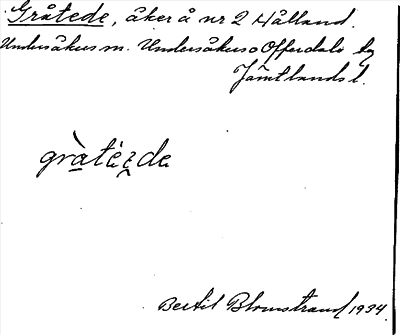 Gråtede, åker å nr 2 Hålland.
Undersåkers sn. Undersåkers o Offerdals tg
Jämtlands l.
gràtèʒde
Bertil Blomstrand 1934